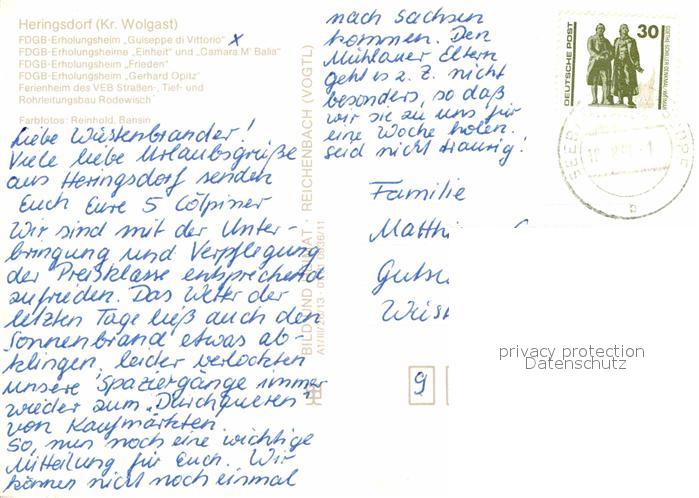 Heringsdorf (Kr. Wolgast)
FDGB-Erholungsheim „Guiseppe di Vittorio" x
FDGB-Erholungsheime „Einheit" und „Camara M' Balia"
FDGB-Erholungsheim „Frieden"
FDGB-Erholungsheim „Gerhard Opitz"
Ferienheim des VEB Straßen-, Tief- und
Rohrleitungsbau Rodewisch
Farbfotos: Reinhold, Bansin
Liebe Wüstenbrander!
Viele liebe Urlaubsgrüße
aus Heringsdorf senden
Euch Eure 5 Cölpiner
Wir sind mit der Unter-
bringung und Verpflegung
der Preisklasse entsprechend
zufrieden. Das Wetter der
letzten Tage ließ auch den
Sonnenbrand etwas ab-
klingen, leider verlockten
unsere Spaziergänge immer
wieder zum „Durchqueren"
von Kaufmärkten.
So, nun noch eine wichtige
Mitteilung für Euch. Wir
können nicht noch einmal
nach Sachsen
kommen. Den
Mühlauer Eltern
geht es z. Z. nicht
besonders, so daß
wir sie zu uns für
eine Woche holen.
Seid nicht traurig!
BILD UND HEIMAT · REICHENBACH (VOGTL)
A1/III/26/13
DEUTSCHE POST
30
Familie
Matthi
Gutsc
Wüst
9
privacy protection
Datenschutz